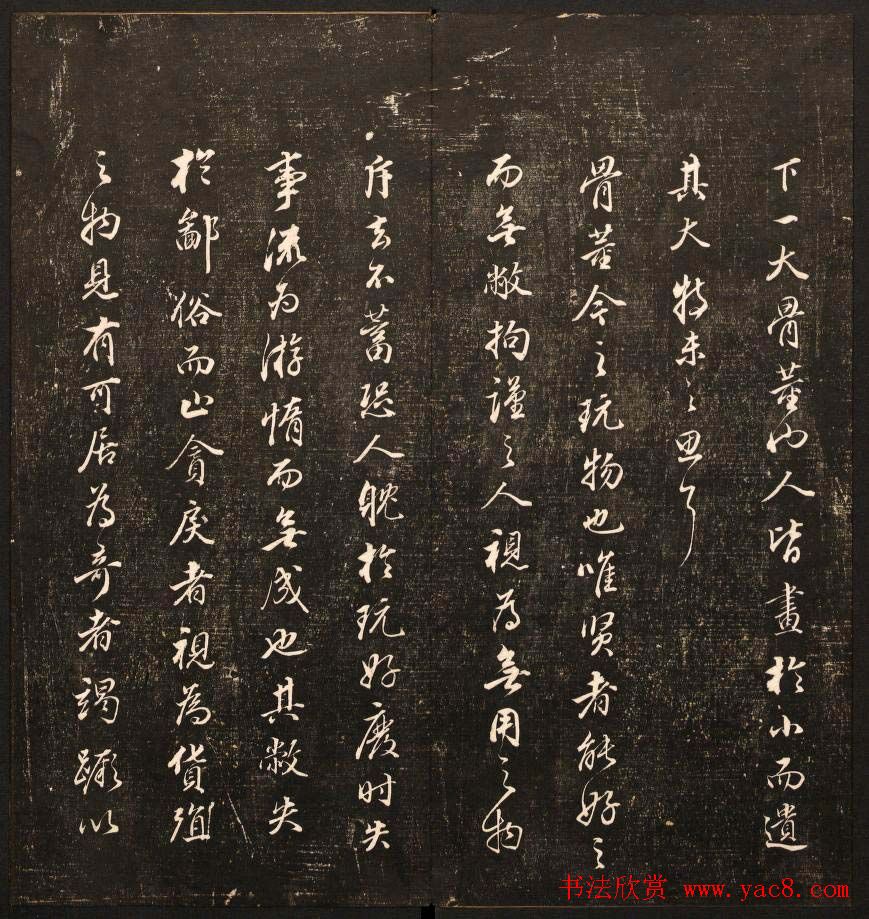 下一大骨董也人皆畫於小而遺
其大特未之思耳
骨董今之玩物也唯贤者能好之
而無敝拘謹之人視為無用之物
斥去不蓄恐人耽於玩好廢时失
事流为游惰而無成也其敝失
於鄙俗而山貪戾者視為貨殖
之物見有可居為奇者竭蹶以
书法欣赏 www.yac8.com